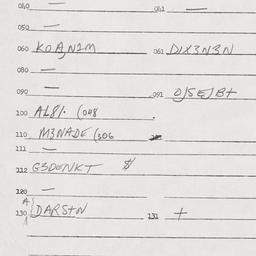 040 — 041 —
050 —
060 KOA,N1M 061 DIX3N3N
080 —
090 — 091 O/SE/B+
100 AL8/. (048
110 M3NADE (306
111 —
112 G3DENKT $
120 —
130 DARS+N 131 +